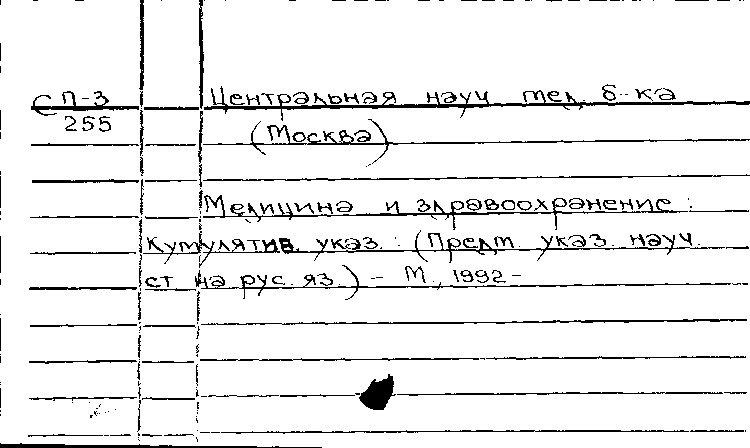 С П-3
255
Центральная науч мед. б-ка
(Москва)
Медицина и здравоохранение :
Кумулятив. указ. : (Предм. указ. науч.
ст на рус. яз.) - М., 1992 -